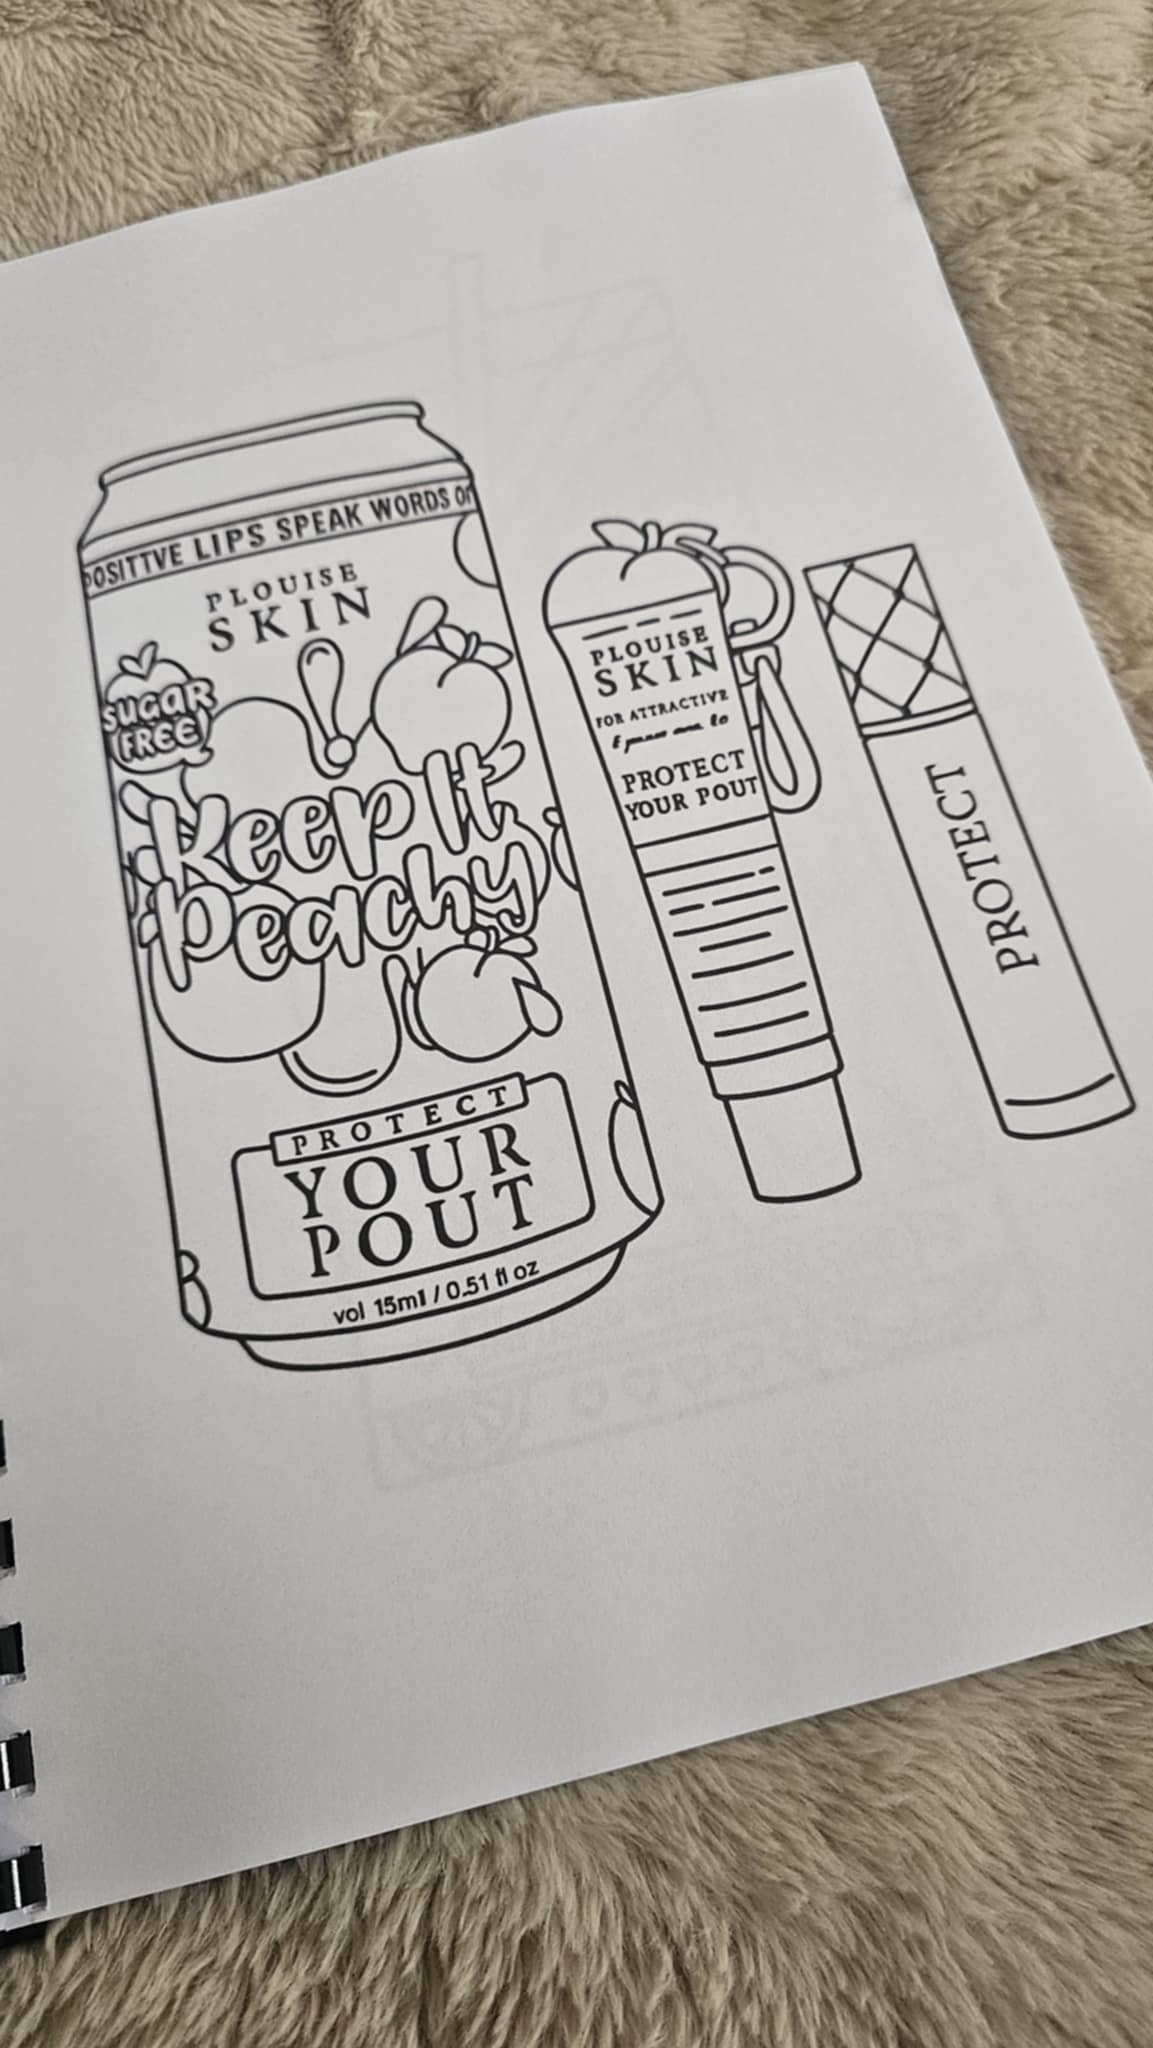 POSITTVE LIPS SPEAK WORDS OF
PLOUISE
SKIN
SUGAR
FREE!
Keep It
Peachy
PROTECT
YOUR
POUT
vol 15ml / 0.51 fl oz
PLOUISE
SKIN
FOR ATTRACTIVE
PROTECT
YOUR POUT
PROTECT